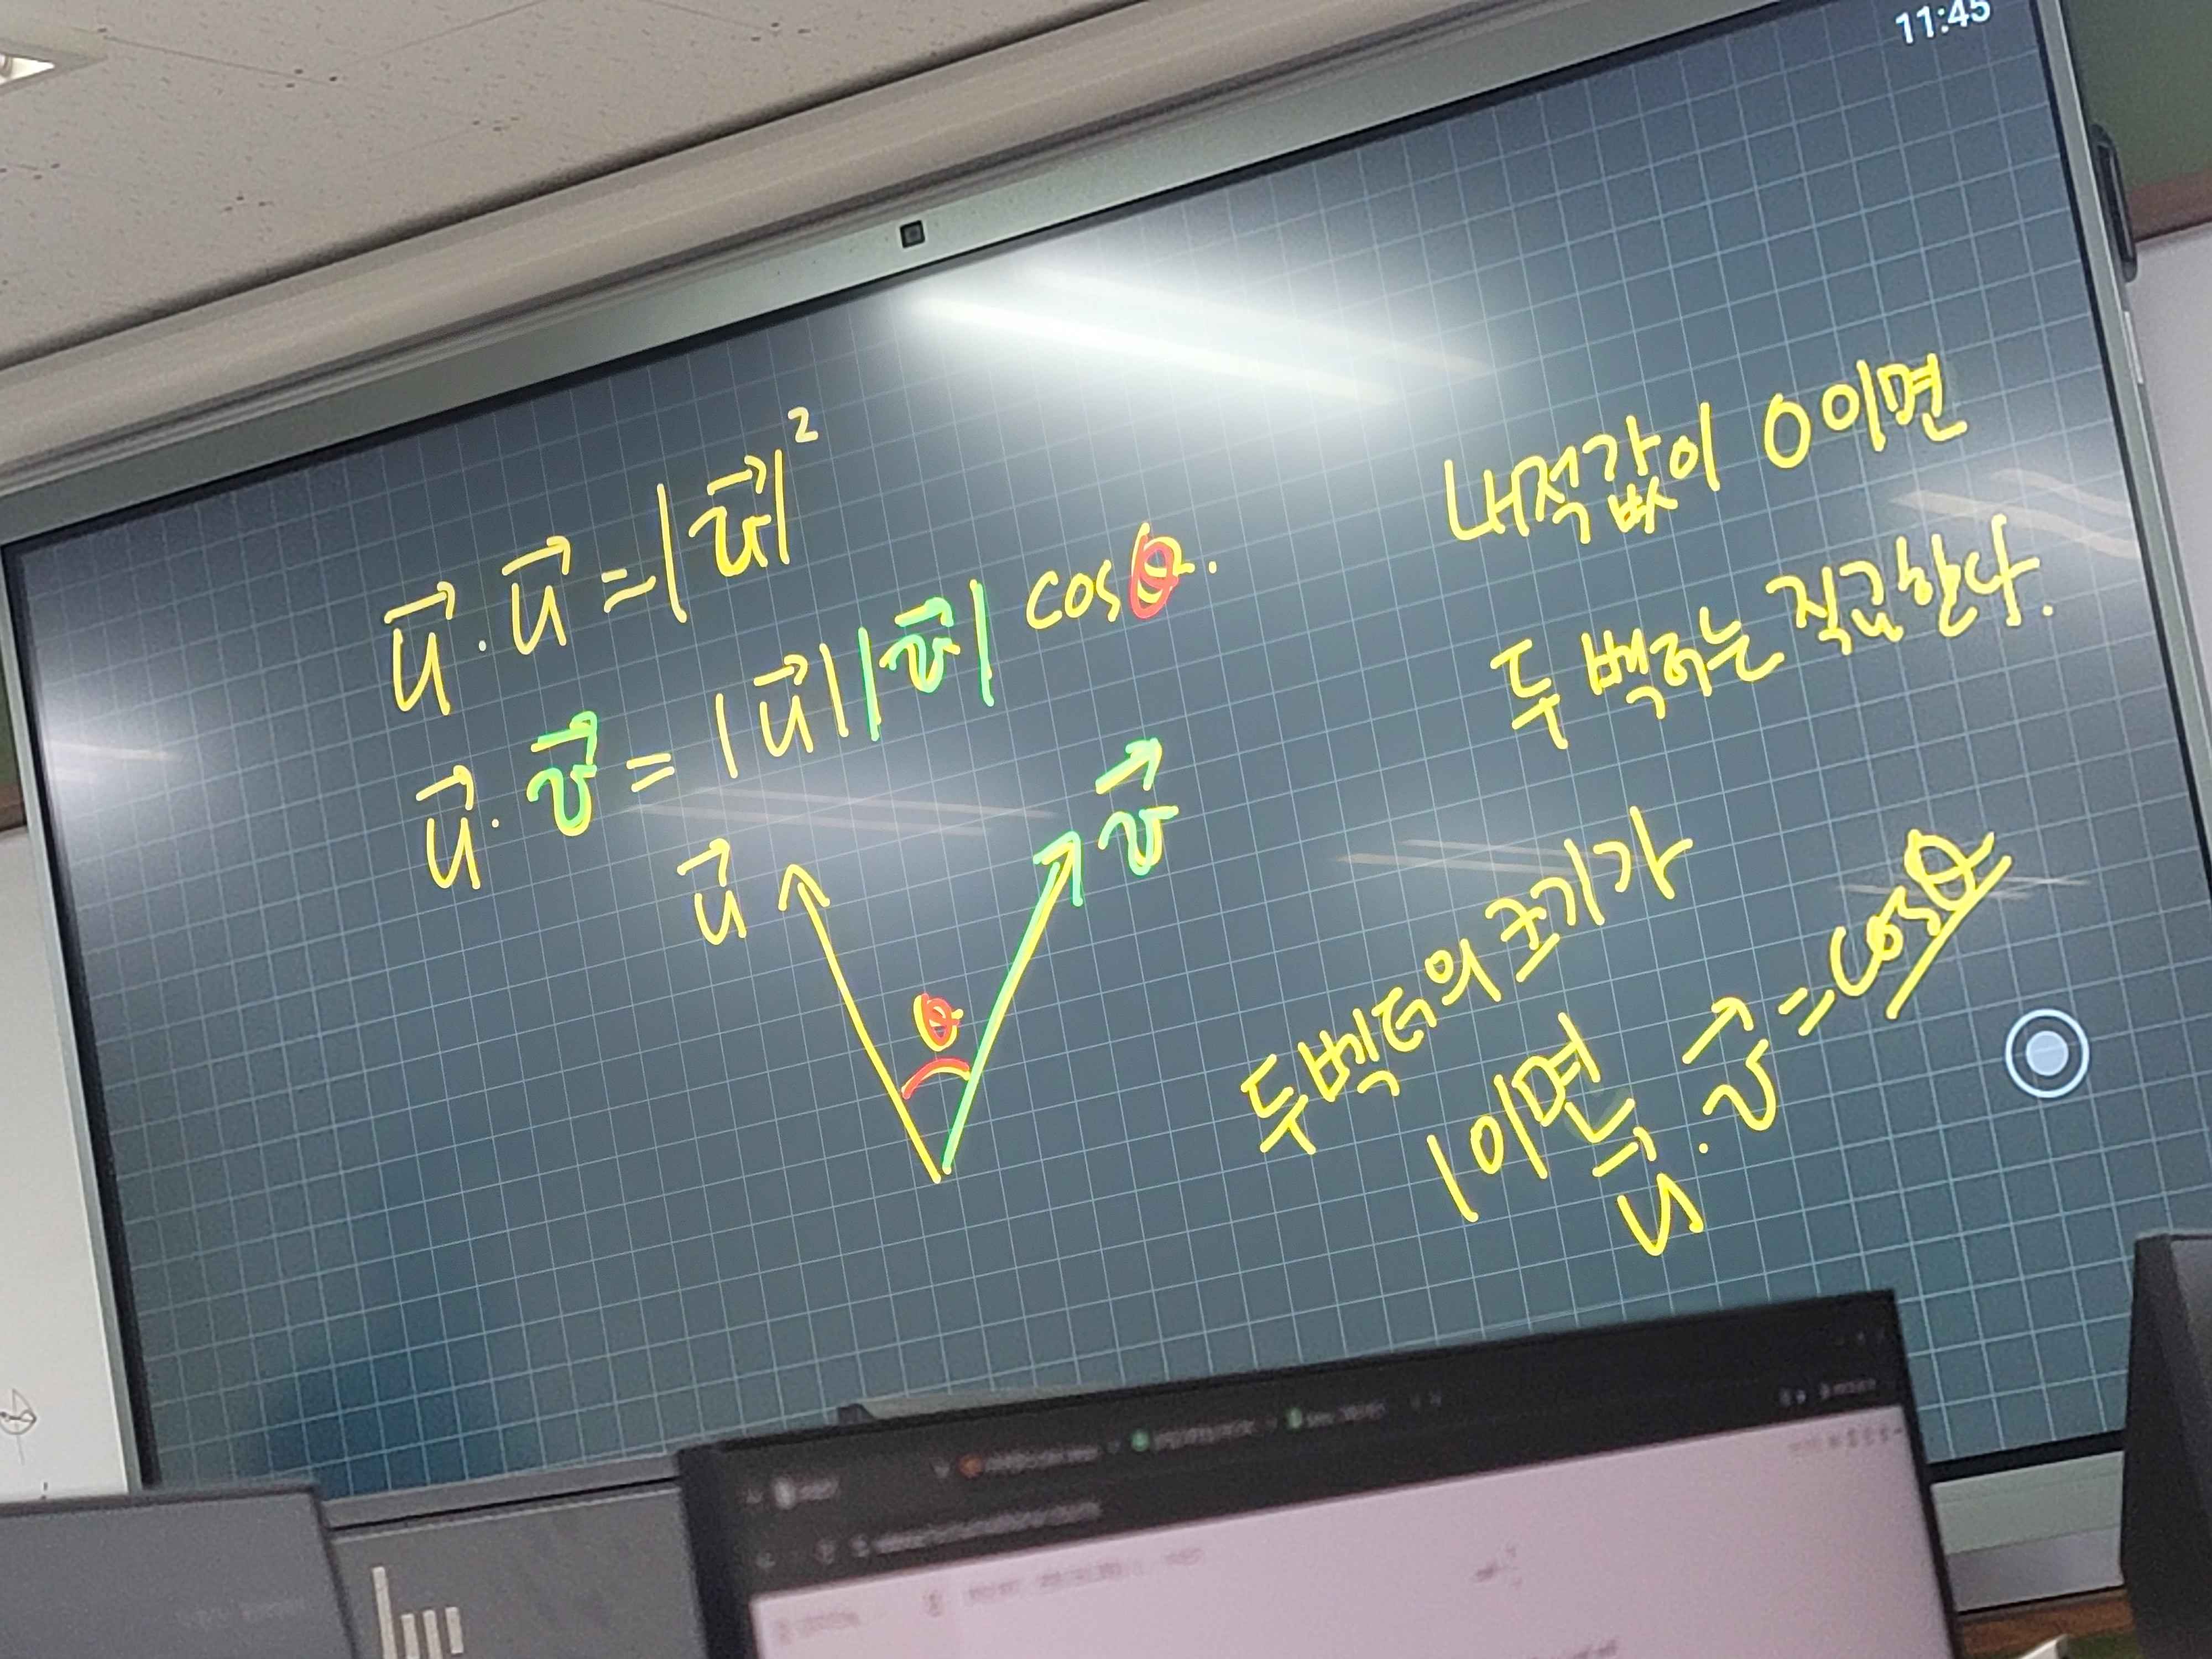 11:45
u⃗ · u⃗ = |u⃗|²
u⃗ · v⃗ = |u⃗||v⃗| cosθ.
u⃗
v⃗
θ
내적값이 0이면
두 벡터는 직교한다.
두 벡터의 크기가
1이면 u⃗ · v⃗ = cosθ
hp